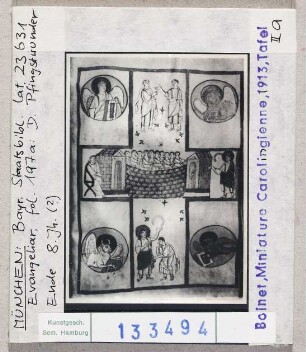 MÜNCHEN: Bayr. Staatsbibl. lat. 23631
Evangeliar, fol. 197a: D. Pfingstwunder
Ende 8. Jh. (?)
Kunstgesch.
Sem. Hamburg
133494
Boinet, Miniature Carolingienne, 1913, Tafel
II a